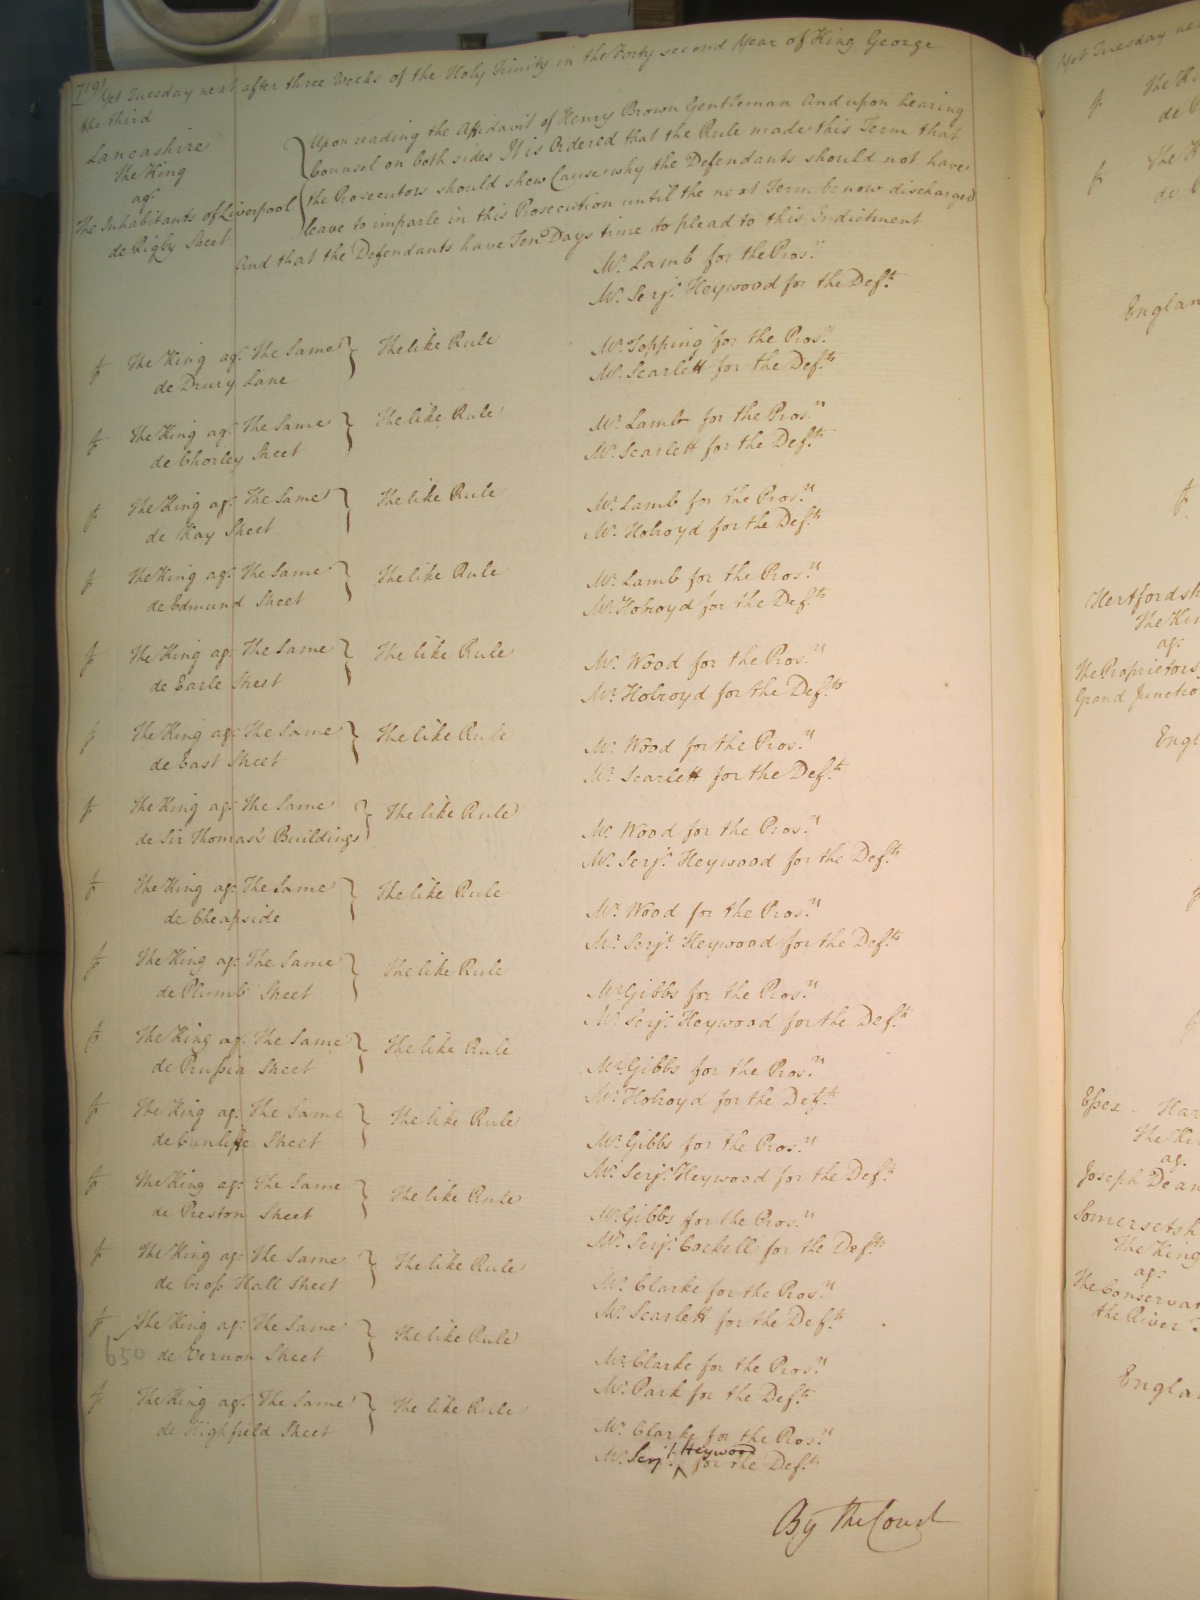 719 Yet Tuesday next after three Weeks of the Holy Trinity in the Forty second Year of King George
the third
Lancashire
The King
agt.
The Inhabitants of Liverpool
de Rigby Street
Upon reading the Affidavit of Henry Brown Gentleman And upon hearing
Counsel on both sides It is Ordered that the Rule made this Term that
the Prosecutors should shew Cause why the Defendants should not have
leave to imparle in this Prosecution until the next Term be now discharged
And that the Defendants have Ten Days time to plead to this Indictment
Mr. Lamb for the Pros.rs
Mr. Serjt. Heywood for the Deft.
The King agt. The Same } The like Rule
de Drury Lane
Mr. Topping for the Pros.rs
Mr. Scarlett for the Defts.
The King agt. The Same } The like Rule
de Chorley Street
Mr. Lamb for the Pros.rs
Mr. Scarlett for the Defts.
The King agt. The Same } The like Rule
de Kay Street
Mr. Lamb for the Pros.rs
Mr. Holroyd for the Defts.
The King agt. The Same } The like Rule
de Edmund Street
Mr. Lamb for the Pros.rs
Mr. Holroyd for the Defts.
The King agt. The Same } The like Rule
de Earle Street
Mr. Wood for the Pros.rs
Mr. Holroyd for the Defts.
The King agt. The Same } The like Rule
de East Street
Mr. Wood for the Pros.rs
Mr. Scarlett for the Defts.
The King agt. the Same } The like Rule
de Sir Thomas's Buildings
Mr. Wood for the Pros.rs
Mr. Serjt. Heywood for the Defts.
The King agt. The Same } The like Rule
de Cheapside
Mr. Wood for the Pros.rs
Mr. Serjt. Heywood for the Defts.
The King agt. The Same } The like Rule
de Plumb Street
Mr. Gibbs for the Pros.rs
Mr. Serjt. Heywood for the Defts.
The King agt. The Same } The like Rule
de Prussia Street
Mr. Gibbs for the Pros.rs
Mr. Holroyd for the Defts.
The King agt. The Same } The like Rule
de Cunliffe Street
Mr. Gibbs for the Pros.rs
Mr. Serjt. Heywood for the Defts.
The King agt. The Same } The like Rule
de Preston Street
Mr. Gibbs for the Pros.rs
Mr. Serjt. Cockell for the Defts.
The King agt. The Same } The like Rule
de Cross Hall Street
Mr. Clarke for the Pros.rs
Mr. Scarlett for the Defts.
The King agt. The Same } The like Rule
650 de Vernon Street
Mr. Clarke for the Pros.rs
Mr. Park for the Defts.
The King agt. The Same } The like Rule
de Highfield Street
Mr. Clarke for the Pros.rs
Mr. Serjt. Heywood for the Defts.
By the Court
Yet Tuesday
England
The
agt.
The Proprietors
Grand Junctio
Essex
agt.
Joseph Dean
The King
agt.
the River